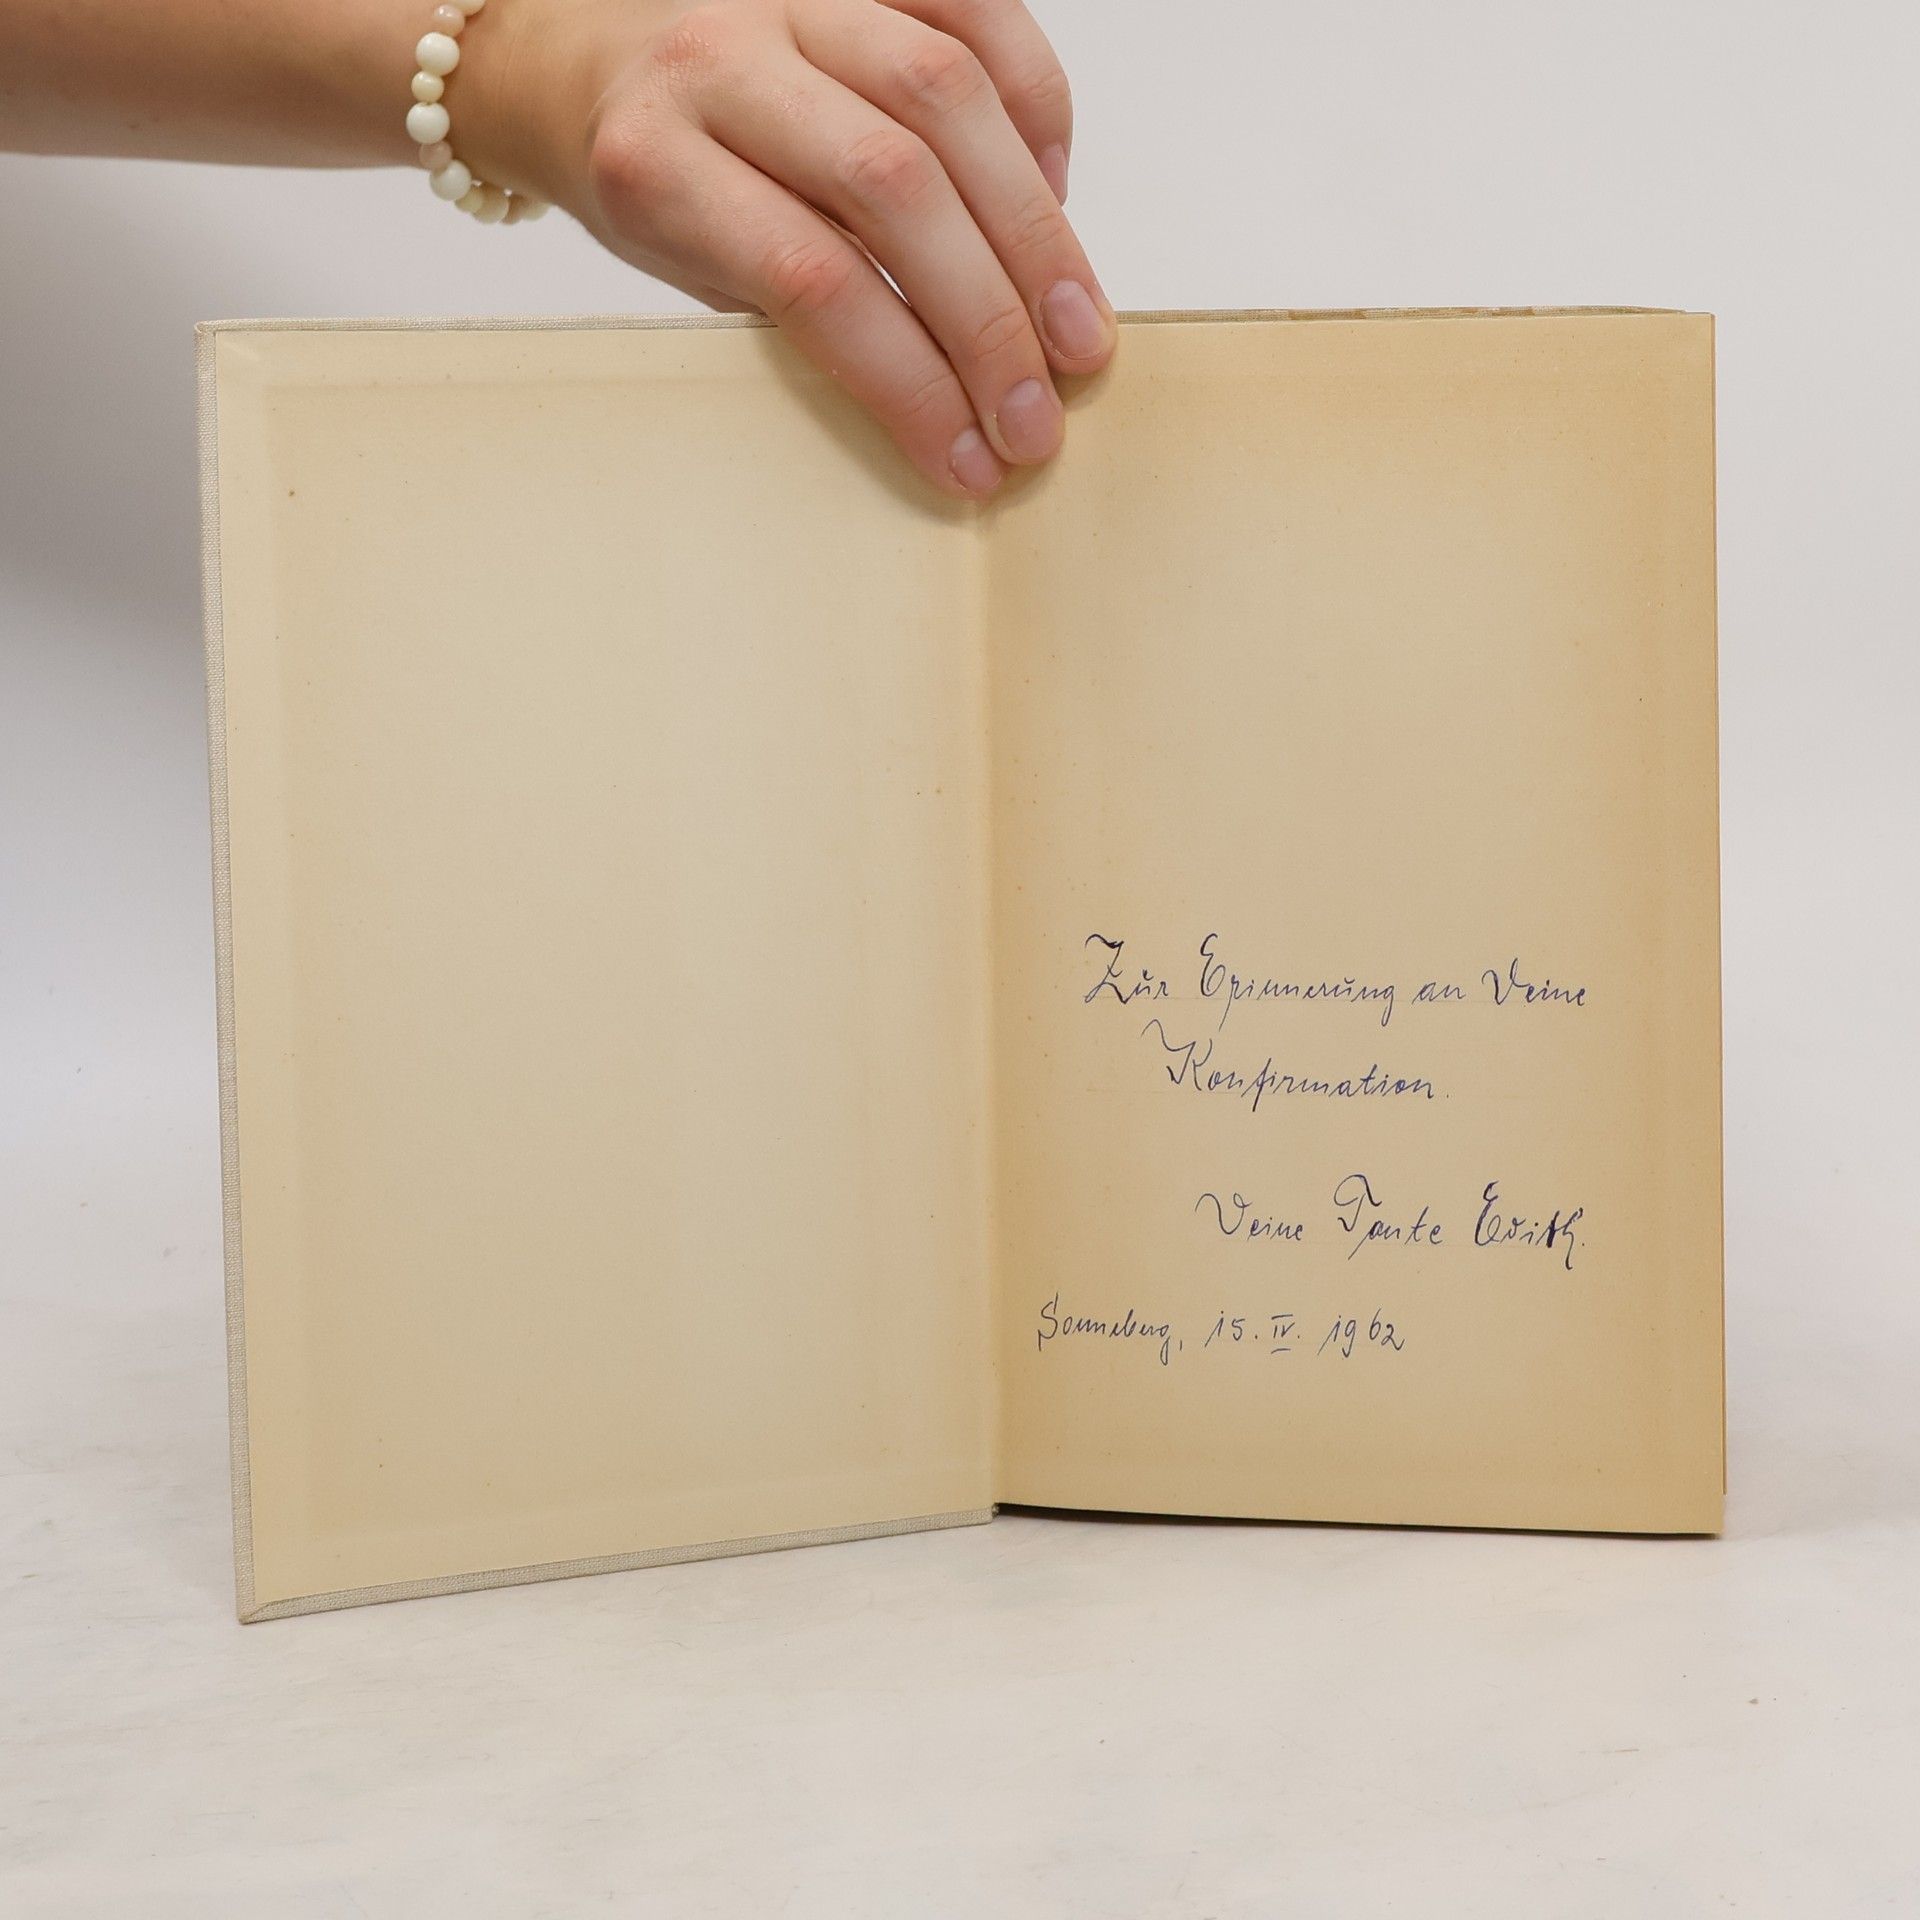 Zur Erinnerung an Deine
Konfirmation.
Deine Tante Edith.
Sonneberg, 15. IV. 1962